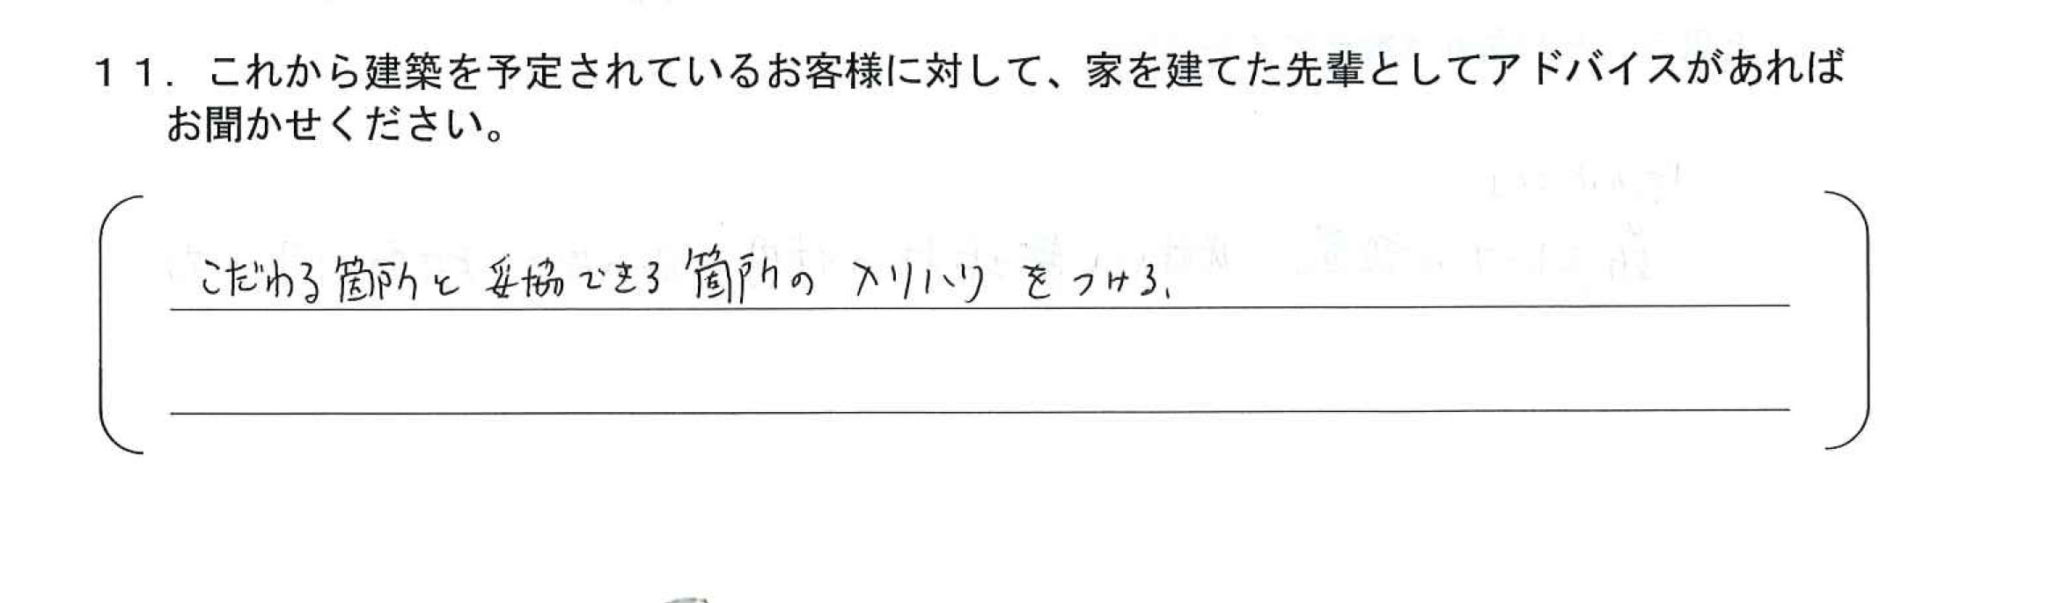 11．これから建築を予定されているお客様に対して、家を建てた先輩としてアドバイスがあれば
お聞かせください。
こだわる箇所と妥協できる箇所のメリハリをつける。